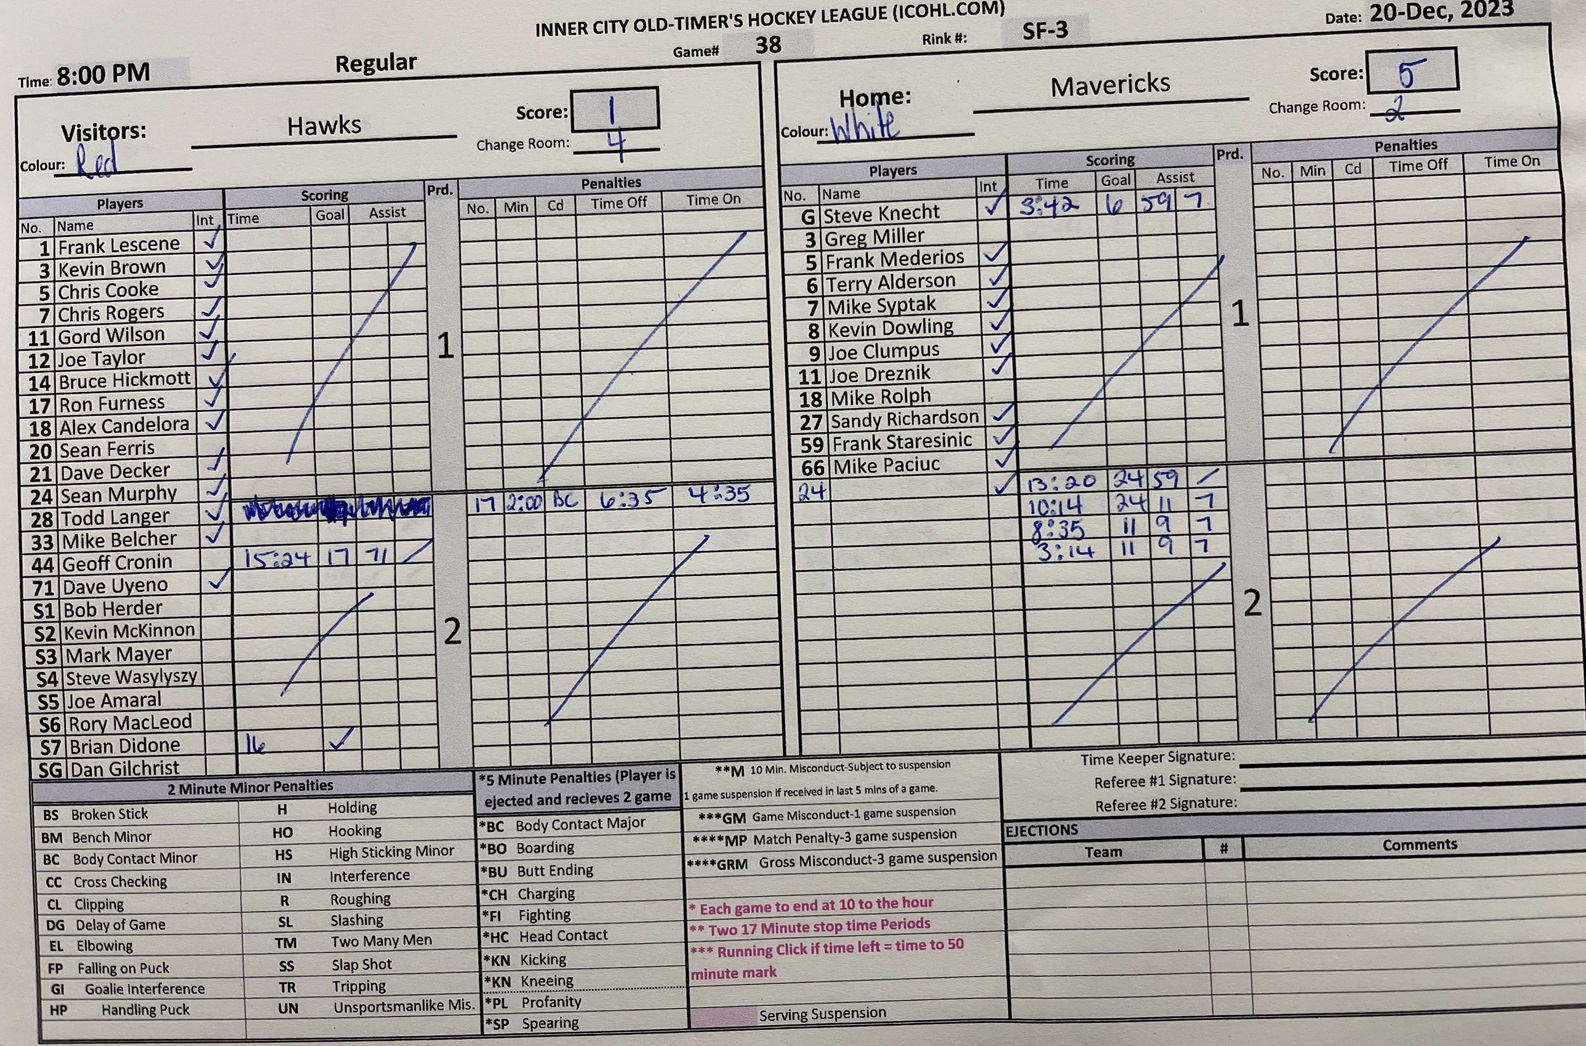 INNER CITY OLD-TIMER'S HOCKEY LEAGUE (ICOHL.COM)
Time: 8:00 PM Regular Game# 38 Rink #: SF-3 Date: 20-Dec, 2023
Visitors: Hawks Score: 1
Colour: Red Change Room: 4
Home: Mavericks Score: 5
Colour: White Change Room: 2
Players Scoring Prd. Penalties
No. Name Int Time Goal Assist No. Min Cd Time Off Time On
1 Frank Lescene ✓
3 Kevin Brown ✓
5 Chris Cooke ✓
7 Chris Rogers ✓
11 Gord Wilson ✓
12 Joe Taylor ✓
14 Bruce Hickmott ✓
17 Ron Furness ✓
18 Alex Candelora ✓
20 Sean Ferris
21 Dave Decker ✓
24 Sean Murphy ✓
28 Todd Langer ✓
33 Mike Belcher ✓
44 Geoff Cronin
71 Dave Uyeno ✓
S1 Bob Herder
S2 Kevin McKinnon
S3 Mark Mayer
S4 Steve Wasylyszy
S5 Joe Amaral
S6 Rory MacLeod
S7 Brian Didone
SG Dan Gilchrist
1
2
17 2:00 BC 6:35 4:35
15:24 17 71 /
16 ✓
Players Scoring Prd. Penalties
No. Name Int Time Goal Assist No. Min Cd Time Off Time On
G Steve Knecht ✓ 3:42 6 59 7
3 Greg Miller
5 Frank Mederios ✓
6 Terry Alderson ✓
7 Mike Syptak ✓
8 Kevin Dowling ✓
9 Joe Clumpus ✓
11 Joe Dreznik ✓
18 Mike Rolph
27 Sandy Richardson ✓
59 Frank Staresinic ✓
66 Mike Paciuc ✓
24 ✓
1
2
13:20 24 59 /
10:14 24 11 7
8:35 11 9 7
3:14 11 9 7
2 Minute Minor Penalties
BS Broken Stick H Holding
BM Bench Minor HO Hooking
BC Body Contact Minor HS High Sticking Minor
CC Cross Checking IN Interference
CL Clipping R Roughing
DG Delay of Game SL Slashing
EL Elbowing TM Two Many Men
FP Falling on Puck SS Slap Shot
GI Goalie Interference TR Tripping
HP Handling Puck UN Unsportsmanlike Mis.
*5 Minute Penalties (Player is
ejected and recieves 2 game
*BC Body Contact Major
*BO Boarding
*BU Butt Ending
*CH Charging
*FI Fighting
*HC Head Contact
*KN Kicking
*KN Kneeing
*PL Profanity
*SP Spearing
**M 10 Min. Misconduct-Subject to suspension
1 game suspension if received in last 5 mins of a game.
***GM Game Misconduct-1 game suspension
****MP Match Penalty-3 game suspension
****GRM Gross Misconduct-3 game suspension
* Each game to end at 10 to the hour
** Two 17 Minute stop time Periods
*** Running Click if time left = time to 50
minute mark
Serving Suspension
Time Keeper Signature:
Referee #1 Signature:
Referee #2 Signature:
EJECTIONS
Team # Comments